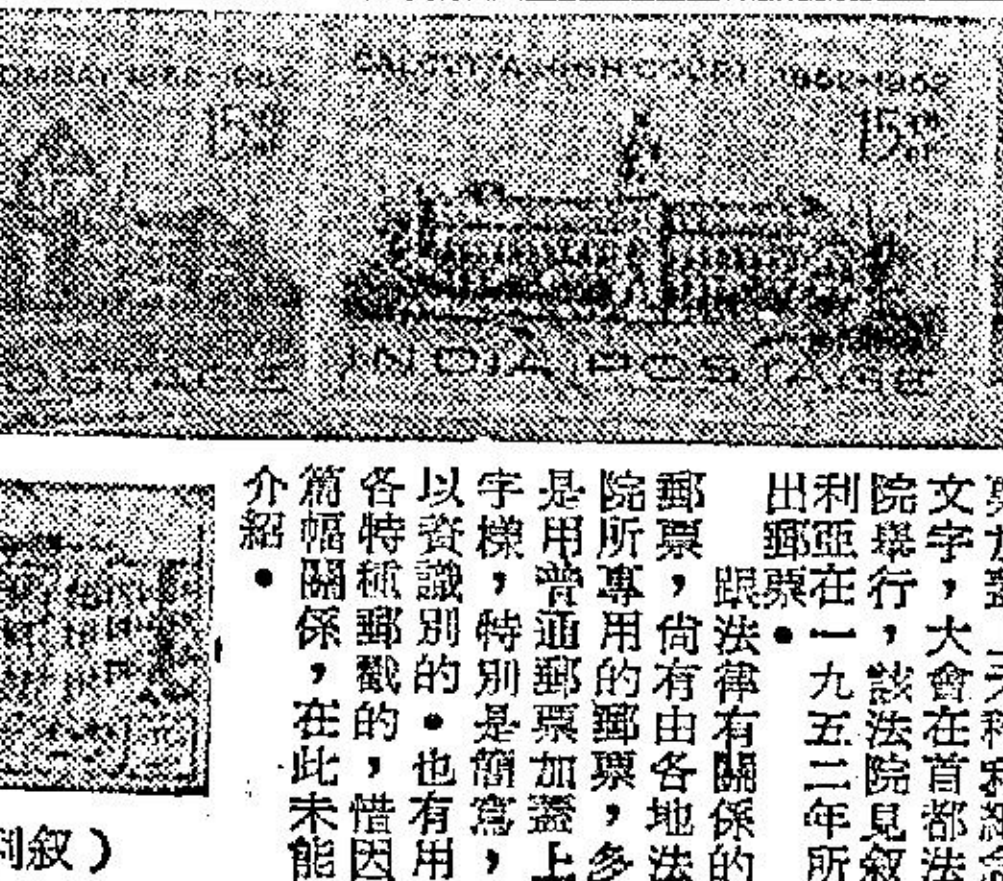 CALCUTTA HIGH COURT 1862-1962
15
15
INDIA POSTAGE
文字，大會在首都法
院舉行，該法院見叙
利亞在一九五二年所
出郵票。
跟法律有關係的
郵票，尙有由各地法
院所專用的郵票，多
是用普通郵票加蓋上
字樣，特別是簡寫，
以資識別的。也有用
各特種郵戳的，惜因
篇幅關係，在此未能
介紹。
叙）